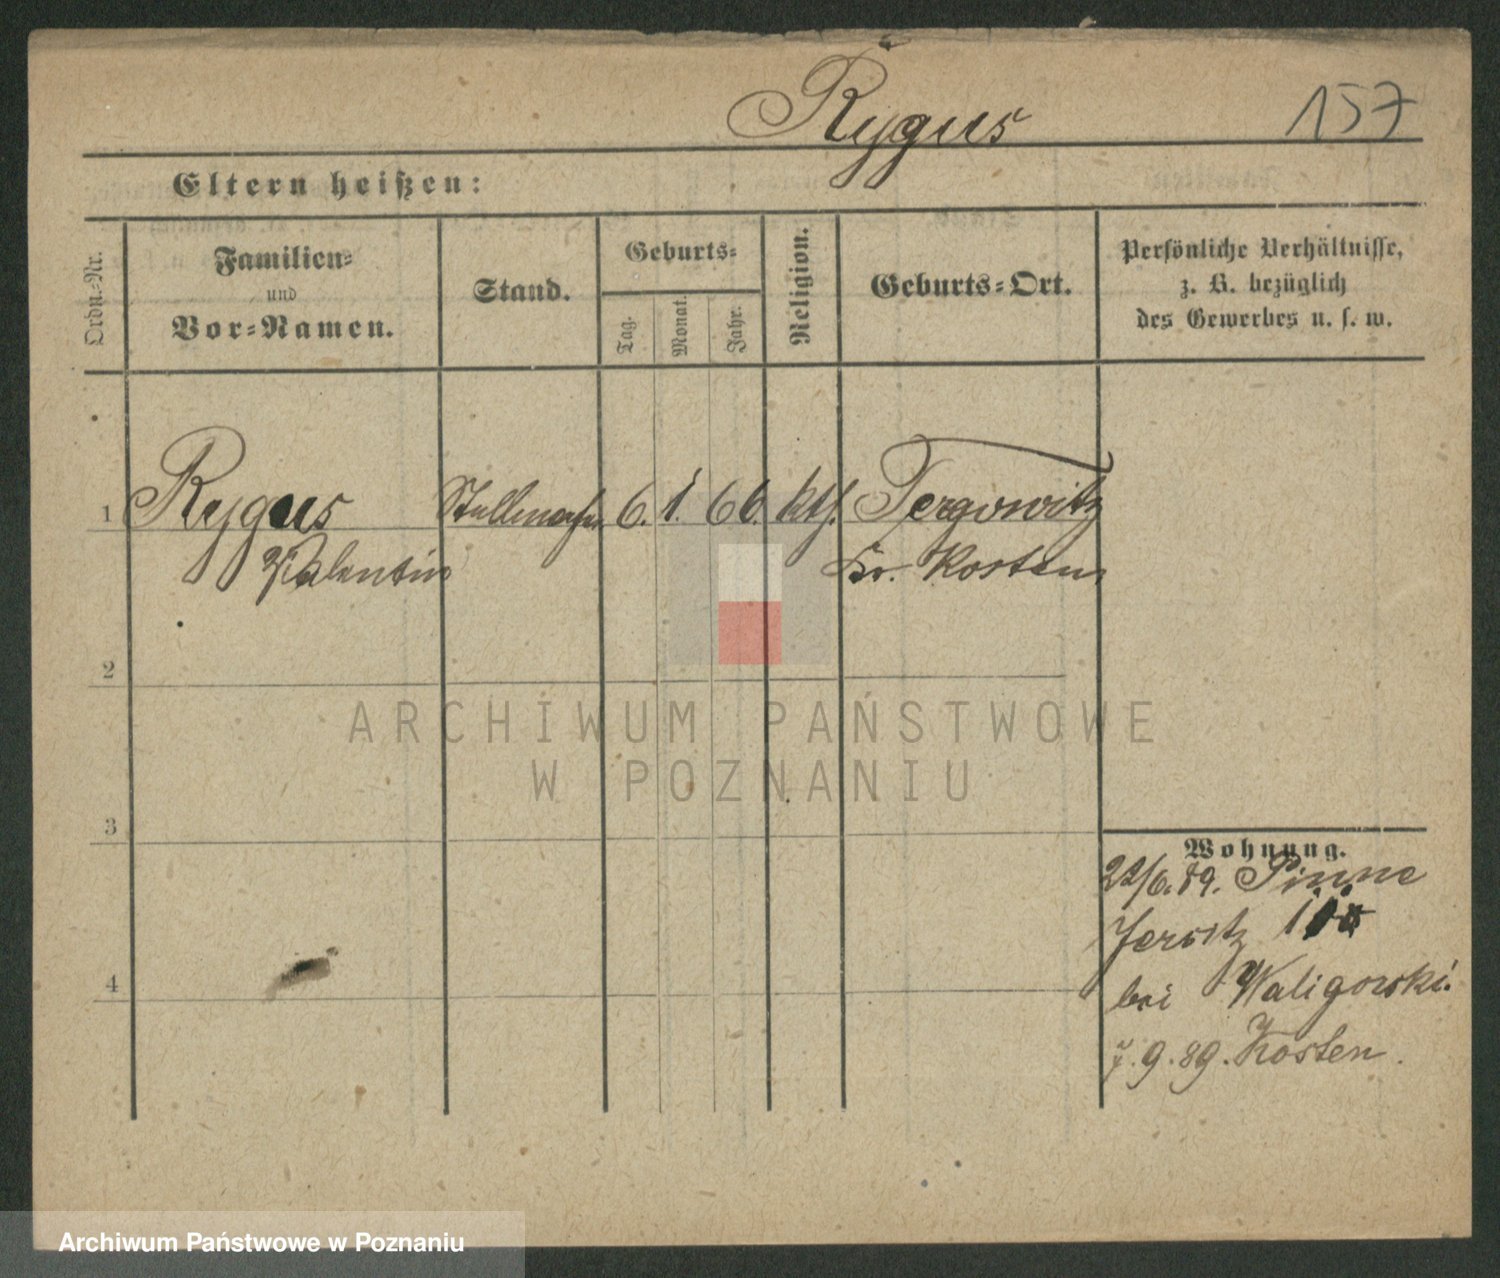 Rygus 157
Eltern heißen:
Ordn.-Nr.
Familien-
und
Vor-Namen.
Stand.
Geburts-
Tag.
Monat.
Jahr.
Religion.
Geburts-Ort.
Persönliche Verhältnisse,
z. B. bezüglich
des Gewerbes u. s. w.
1 Rygus Stellmacher 6. 1. 66. kth. Tergowitz
Valentin Kr. Kosten
2
3
4
Wohnung.
22/6.89. Pinne
Jersitz
bei Waligorski.
7.9.89. Kosten.
ARCHIWUM PAŃSTWOWE
W POZNANIU
Archiwum Państwowe w Poznaniu